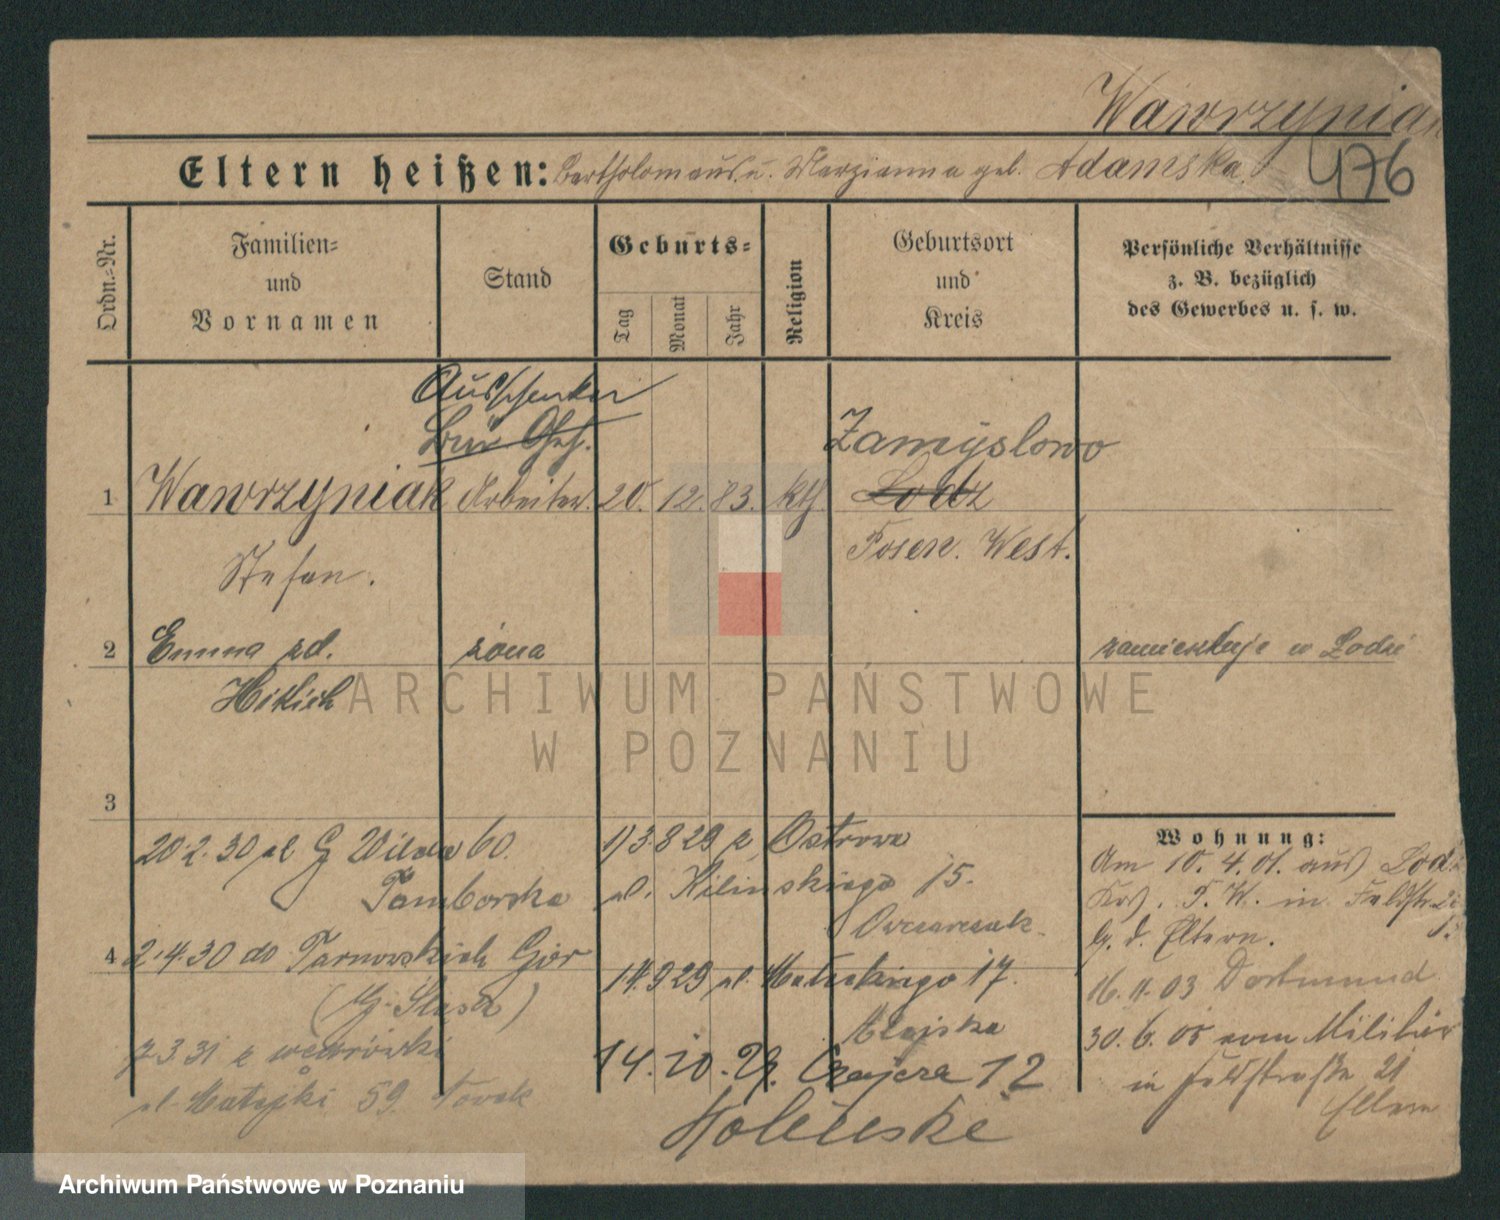 Wawrzyniak
Eltern heißen: Bartholomäus u. Marzianna geb. Adamska.
476
Ordn.=Nr.
Familien=
und
Vornamen
Stand
Geburts=
Tag
Monat
Jahr
Religion
Geburtsort
und
Kreis
Persönliche Verhältnisse
z. B. bezüglich
des Gewerbes u. s. w.
Ausschenker
Zamyslowo
1 Wawrzyniak Arbeiter. 20. 12. 83. kth. Lodz
Stefan.
Posen. West.
2 Emma zd. żona zamieszkuje w Lodzi
3
Wohnung:
20.2.30 pl. G Wilda 60.
Tamborska
1) 3.8 29 z Ostrowa
ul. Kilińskiego 15.
Owczarczak
Am 10. 4. 01. aus Lodz
P. W. in Feldstr. 21
b. d. Eltern.
4 2.4.30 do Tarnowskich Gór
(G. Śląsk)
14.9 29 ul. Matejkiego 17.
16. 11. 03 Dortmund
30. 6. 05 vom Militär
in Feldstraße 21
Eltern
7 3 31 z wędrówki
ul. Matejki 59. Nowak
14. 10. 29. Czajcza 12
ARCHIWUM PAŃSTWOWE
W POZNANIU
Archiwum Państwowe w Poznaniu